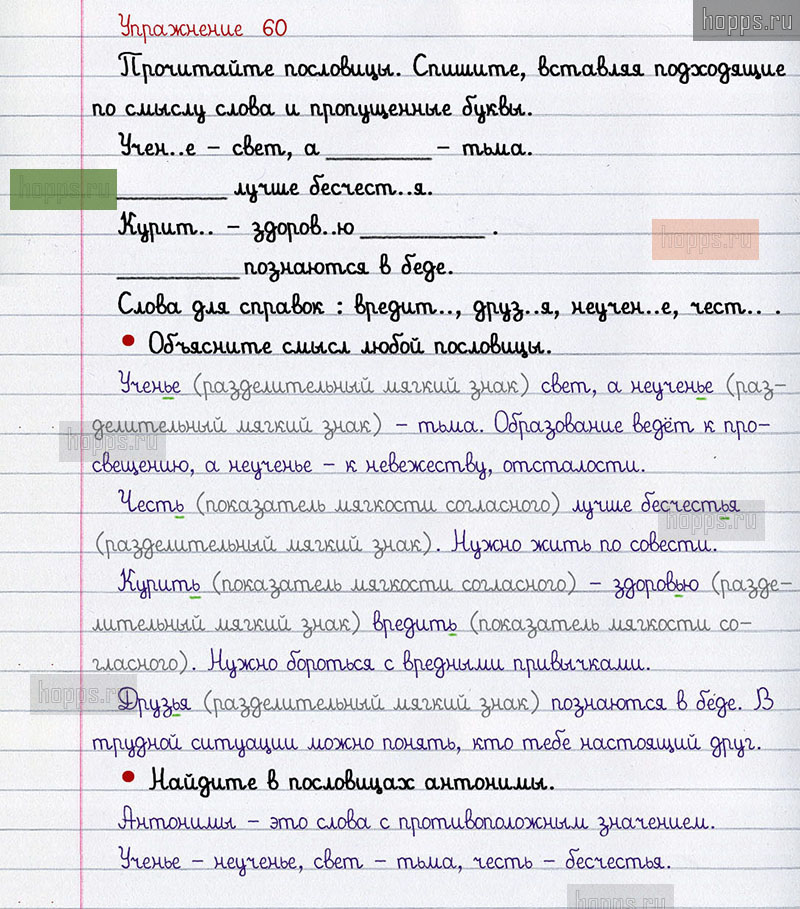 hopps.ru
Упражнение 60
Прочитайте пословицы. Спишите, вставляя подходящие
по смыслу слова и пропущенные буквы.
Учен..е – свет, а ________ – тьма.
hopps.ru
________ лучше бесчест..я.
Курит.. – здоров..ю ________ .
hopps.ru
________ познаются в беде.
Слова для справок : вредит.., друз..я, неучен..е, чест.. .
• Объясните смысл любой пословицы.
Ученье (разделительный мягкий знак) свет, а неученье (раз-
делительный мягкий знак) – тьма. Образование ведёт к про-
hopps.ru
свещению, а неученье – к невежеству, отсталости.
Честь (показатель мягкости согласного) лучше бесчестья
hopps.ru
(разделительный мягкий знак). Нужно жить по совести.
Курить (показатель мягкости согласного) – здоровью (разде-
лительный мягкий знак) вредить (показатель мягкости со-
гласного). Нужно бороться с вредными привычками.
hopps.ru
Друзья (разделительный мягкий знак) познаются в беде. В
трудной ситуации можно понять, кто тебе настоящий друг.
• Найдите в пословицах антонимы.
Антонимы – это слова с противоположным значением.
Ученье – неученье, свет – тьма, честь – бесчестья.
hopps.ru